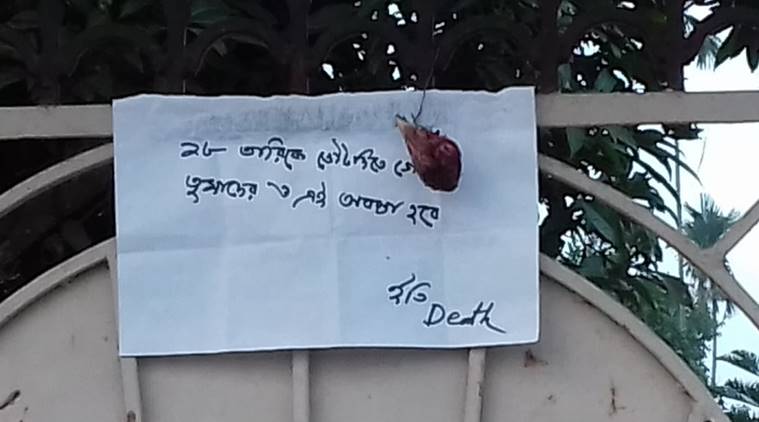 ২৮ তারিকে ভোট দিতে গে
তুমাদের ও এই অবস্তা হবে
ইতি
Death